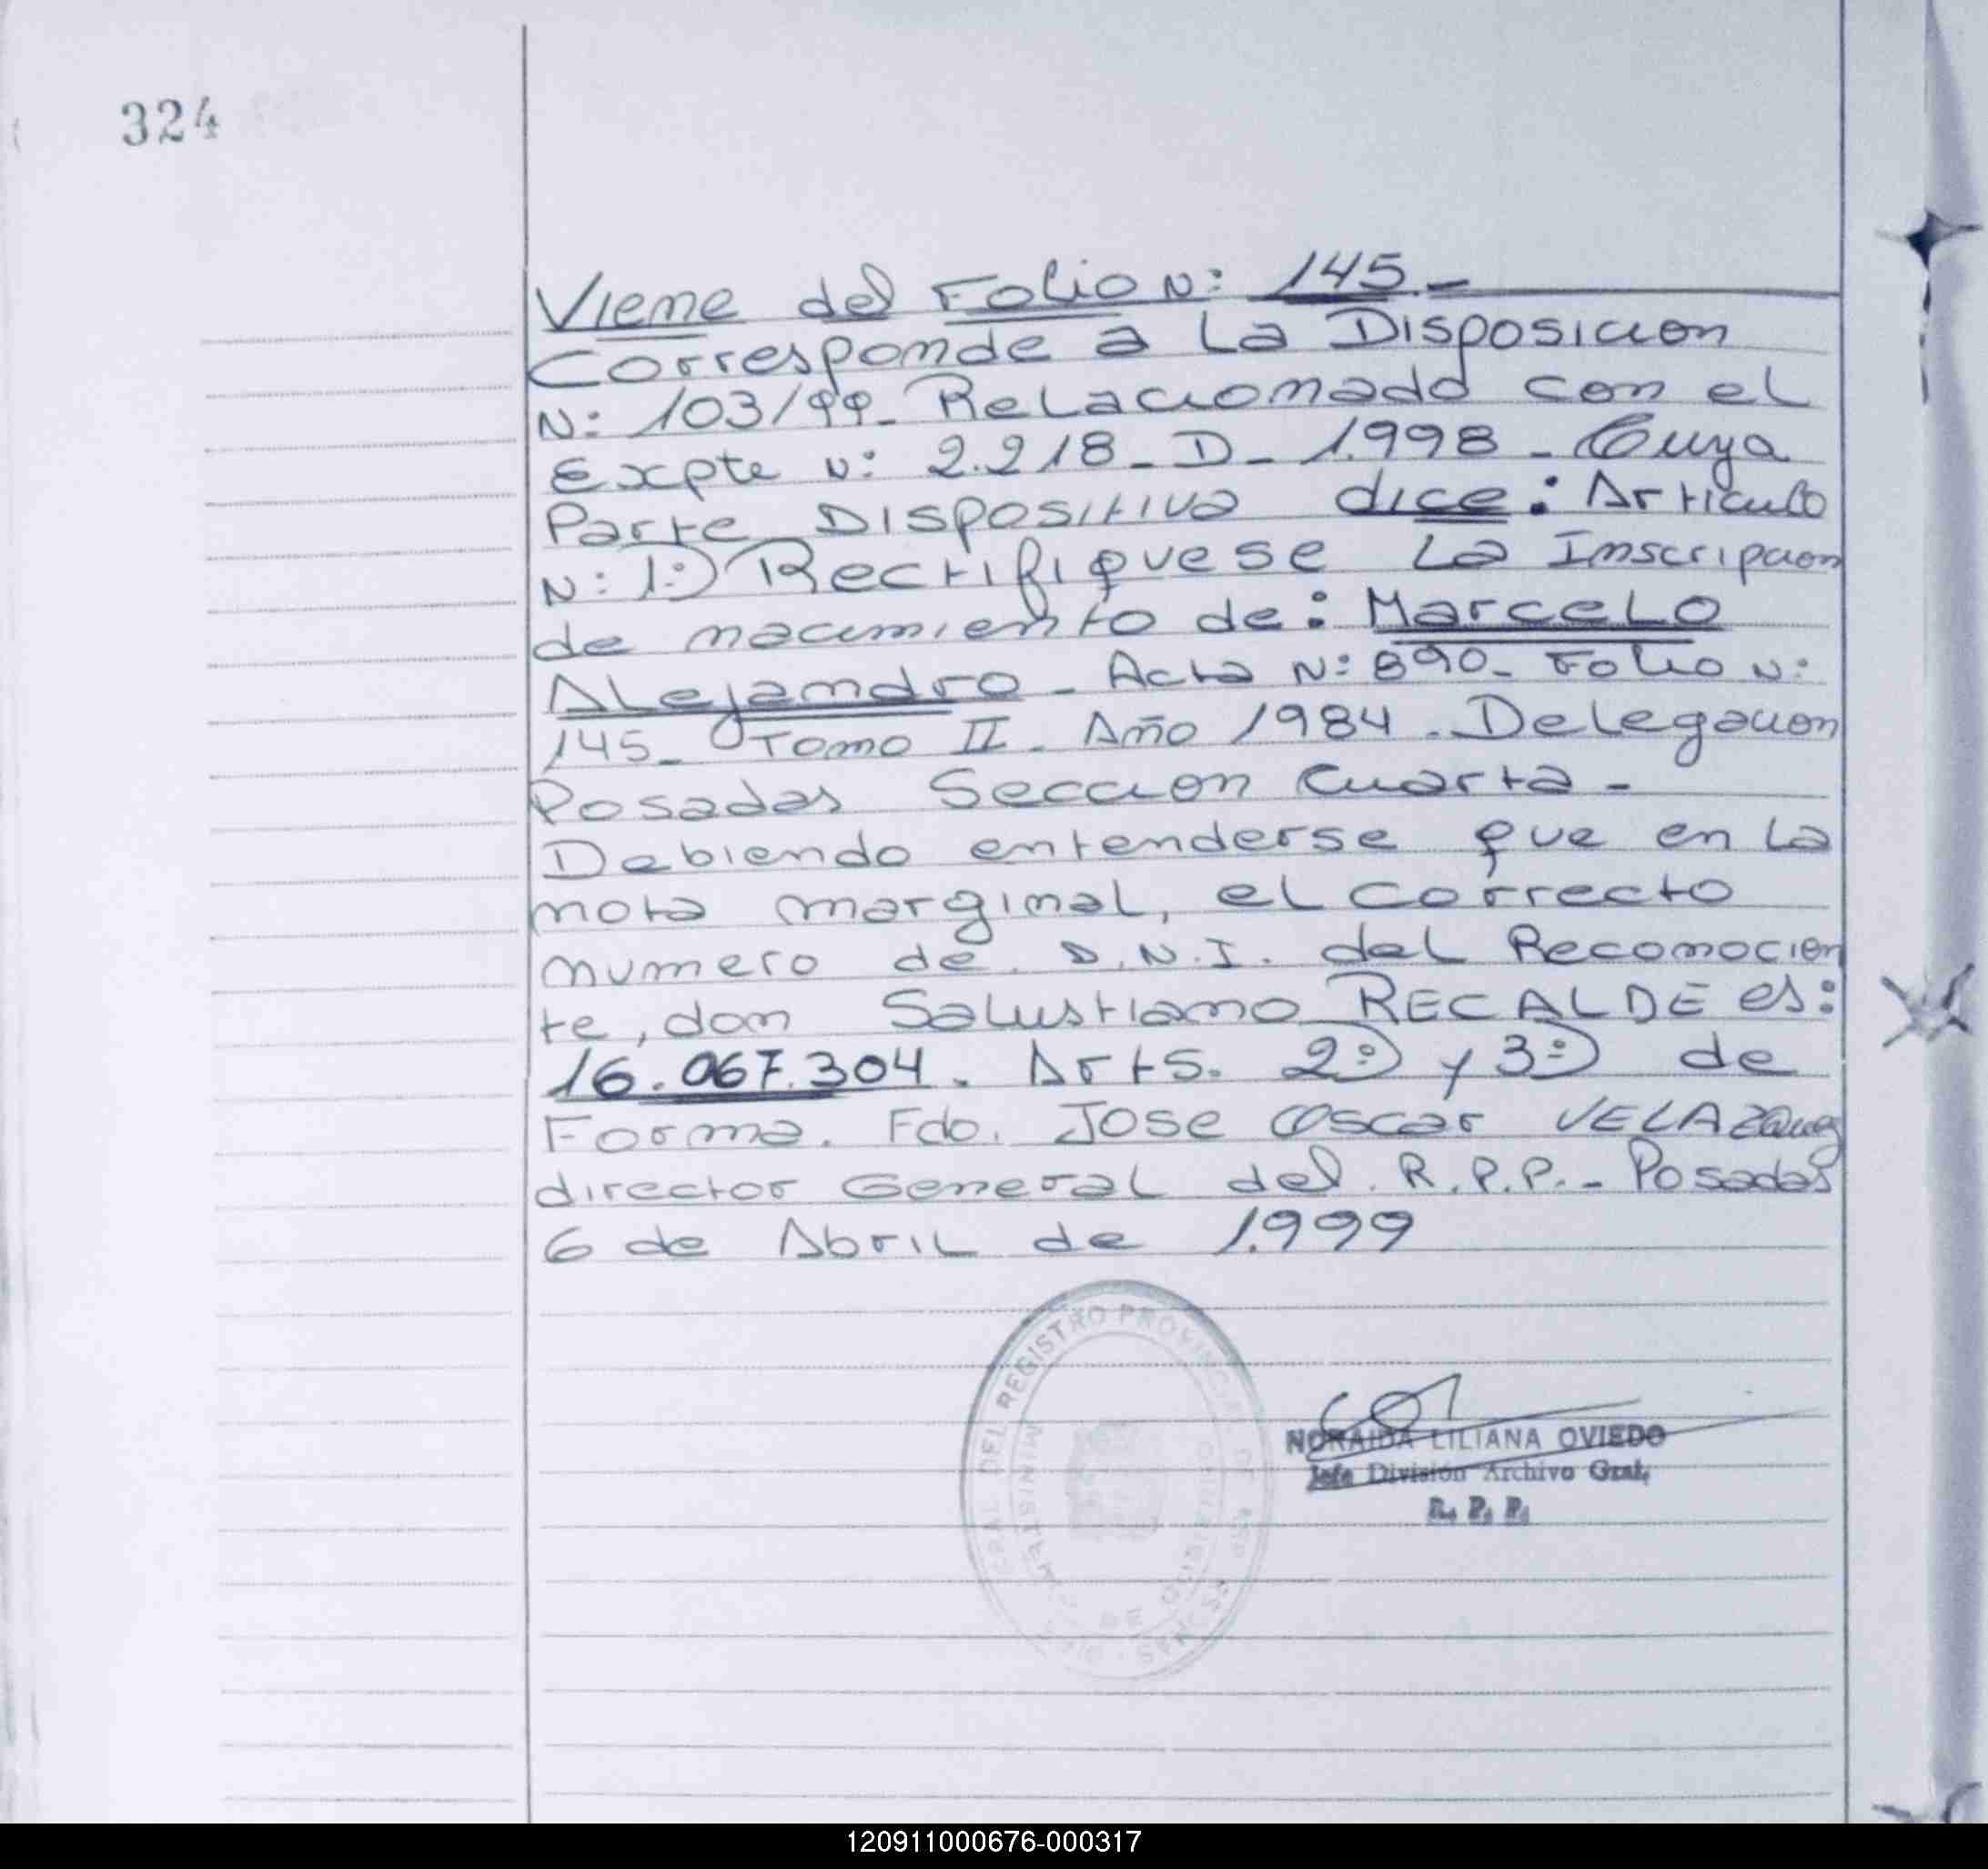 324
Viene del Folio N: 145.-
Corresponde a La Disposicion
N: 103/99- Relacionado con el
Expte N: 2.218-D-1.998- Cuya
Parte Dispositiva dice: Articulo
N: 1º) Rectifiquese La Inscripcion
de nacimiento de: Marcelo
Alejandro - Acta N: 890- Folio N:
145- Tomo II. Año 1984. Delegacion
Posadas Seccion Cuarta -
Debiendo entenderse que en La
nota marginal, el correcto
numero de D.N.I. del Reconocien
te, don Salustiano RECALDE es:
16.067.304. Arts. 2º) y 3º) de
Forma. Fdo. Jose Oscar VELAZquez
director General del R.P.P.- Posadas
6 de Abril de 1.999
DEL REGISTRO PROVINCIAL DE
NORAIDA LILIANA OVIEDO
Jefe División Archivo Gral.
R. P. P.
120911000676-000317